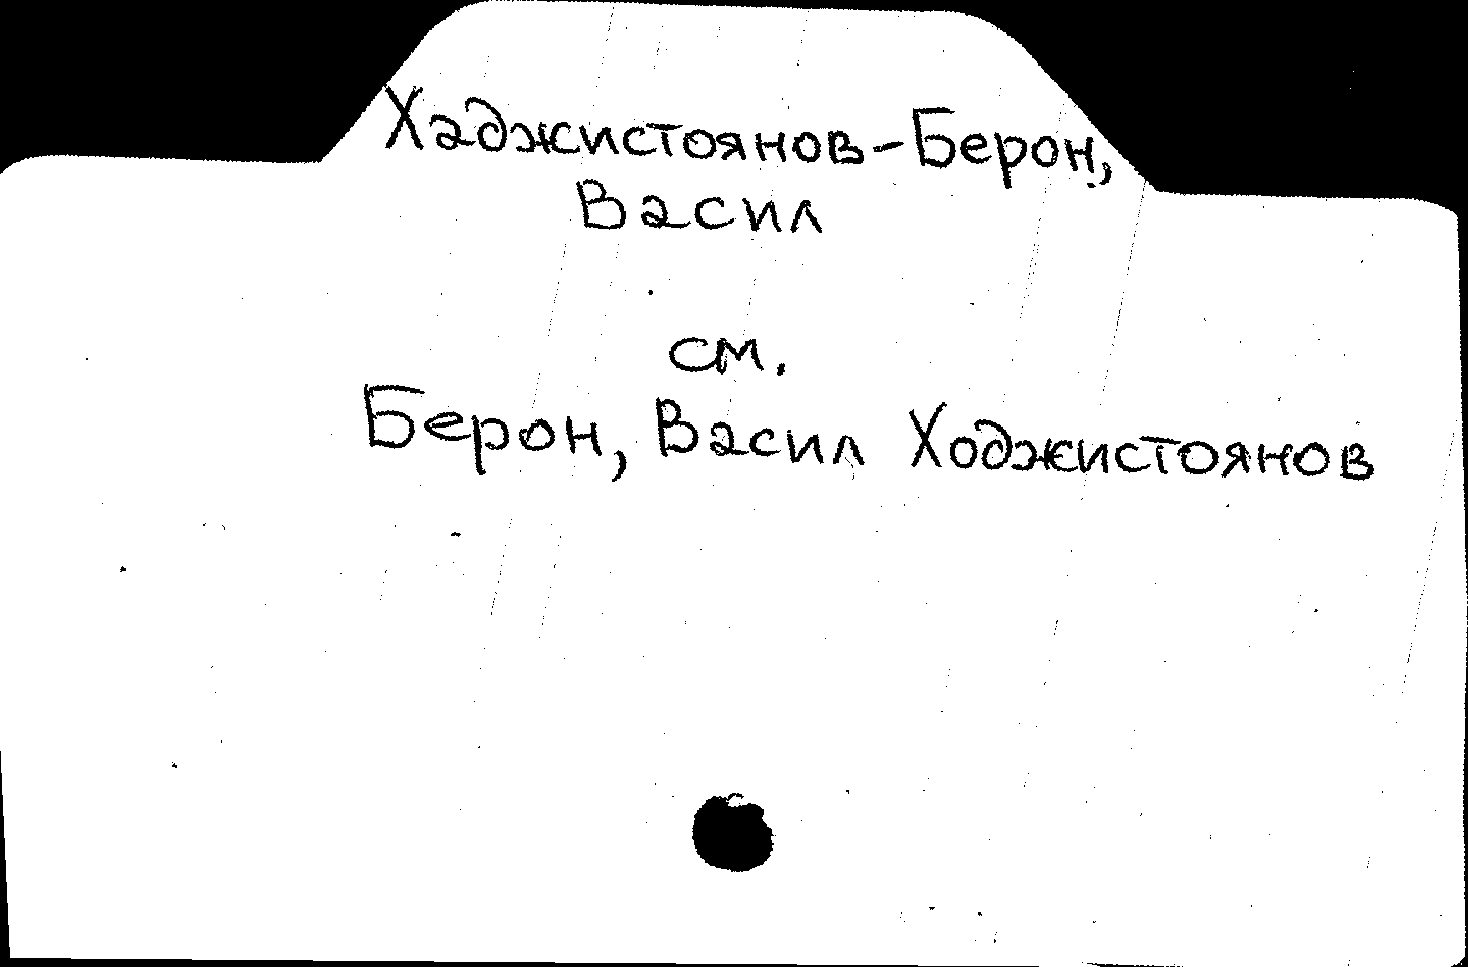 Хаджистоянов-Берон,
Васил
см.
Берон, Васил Ходжистоянов